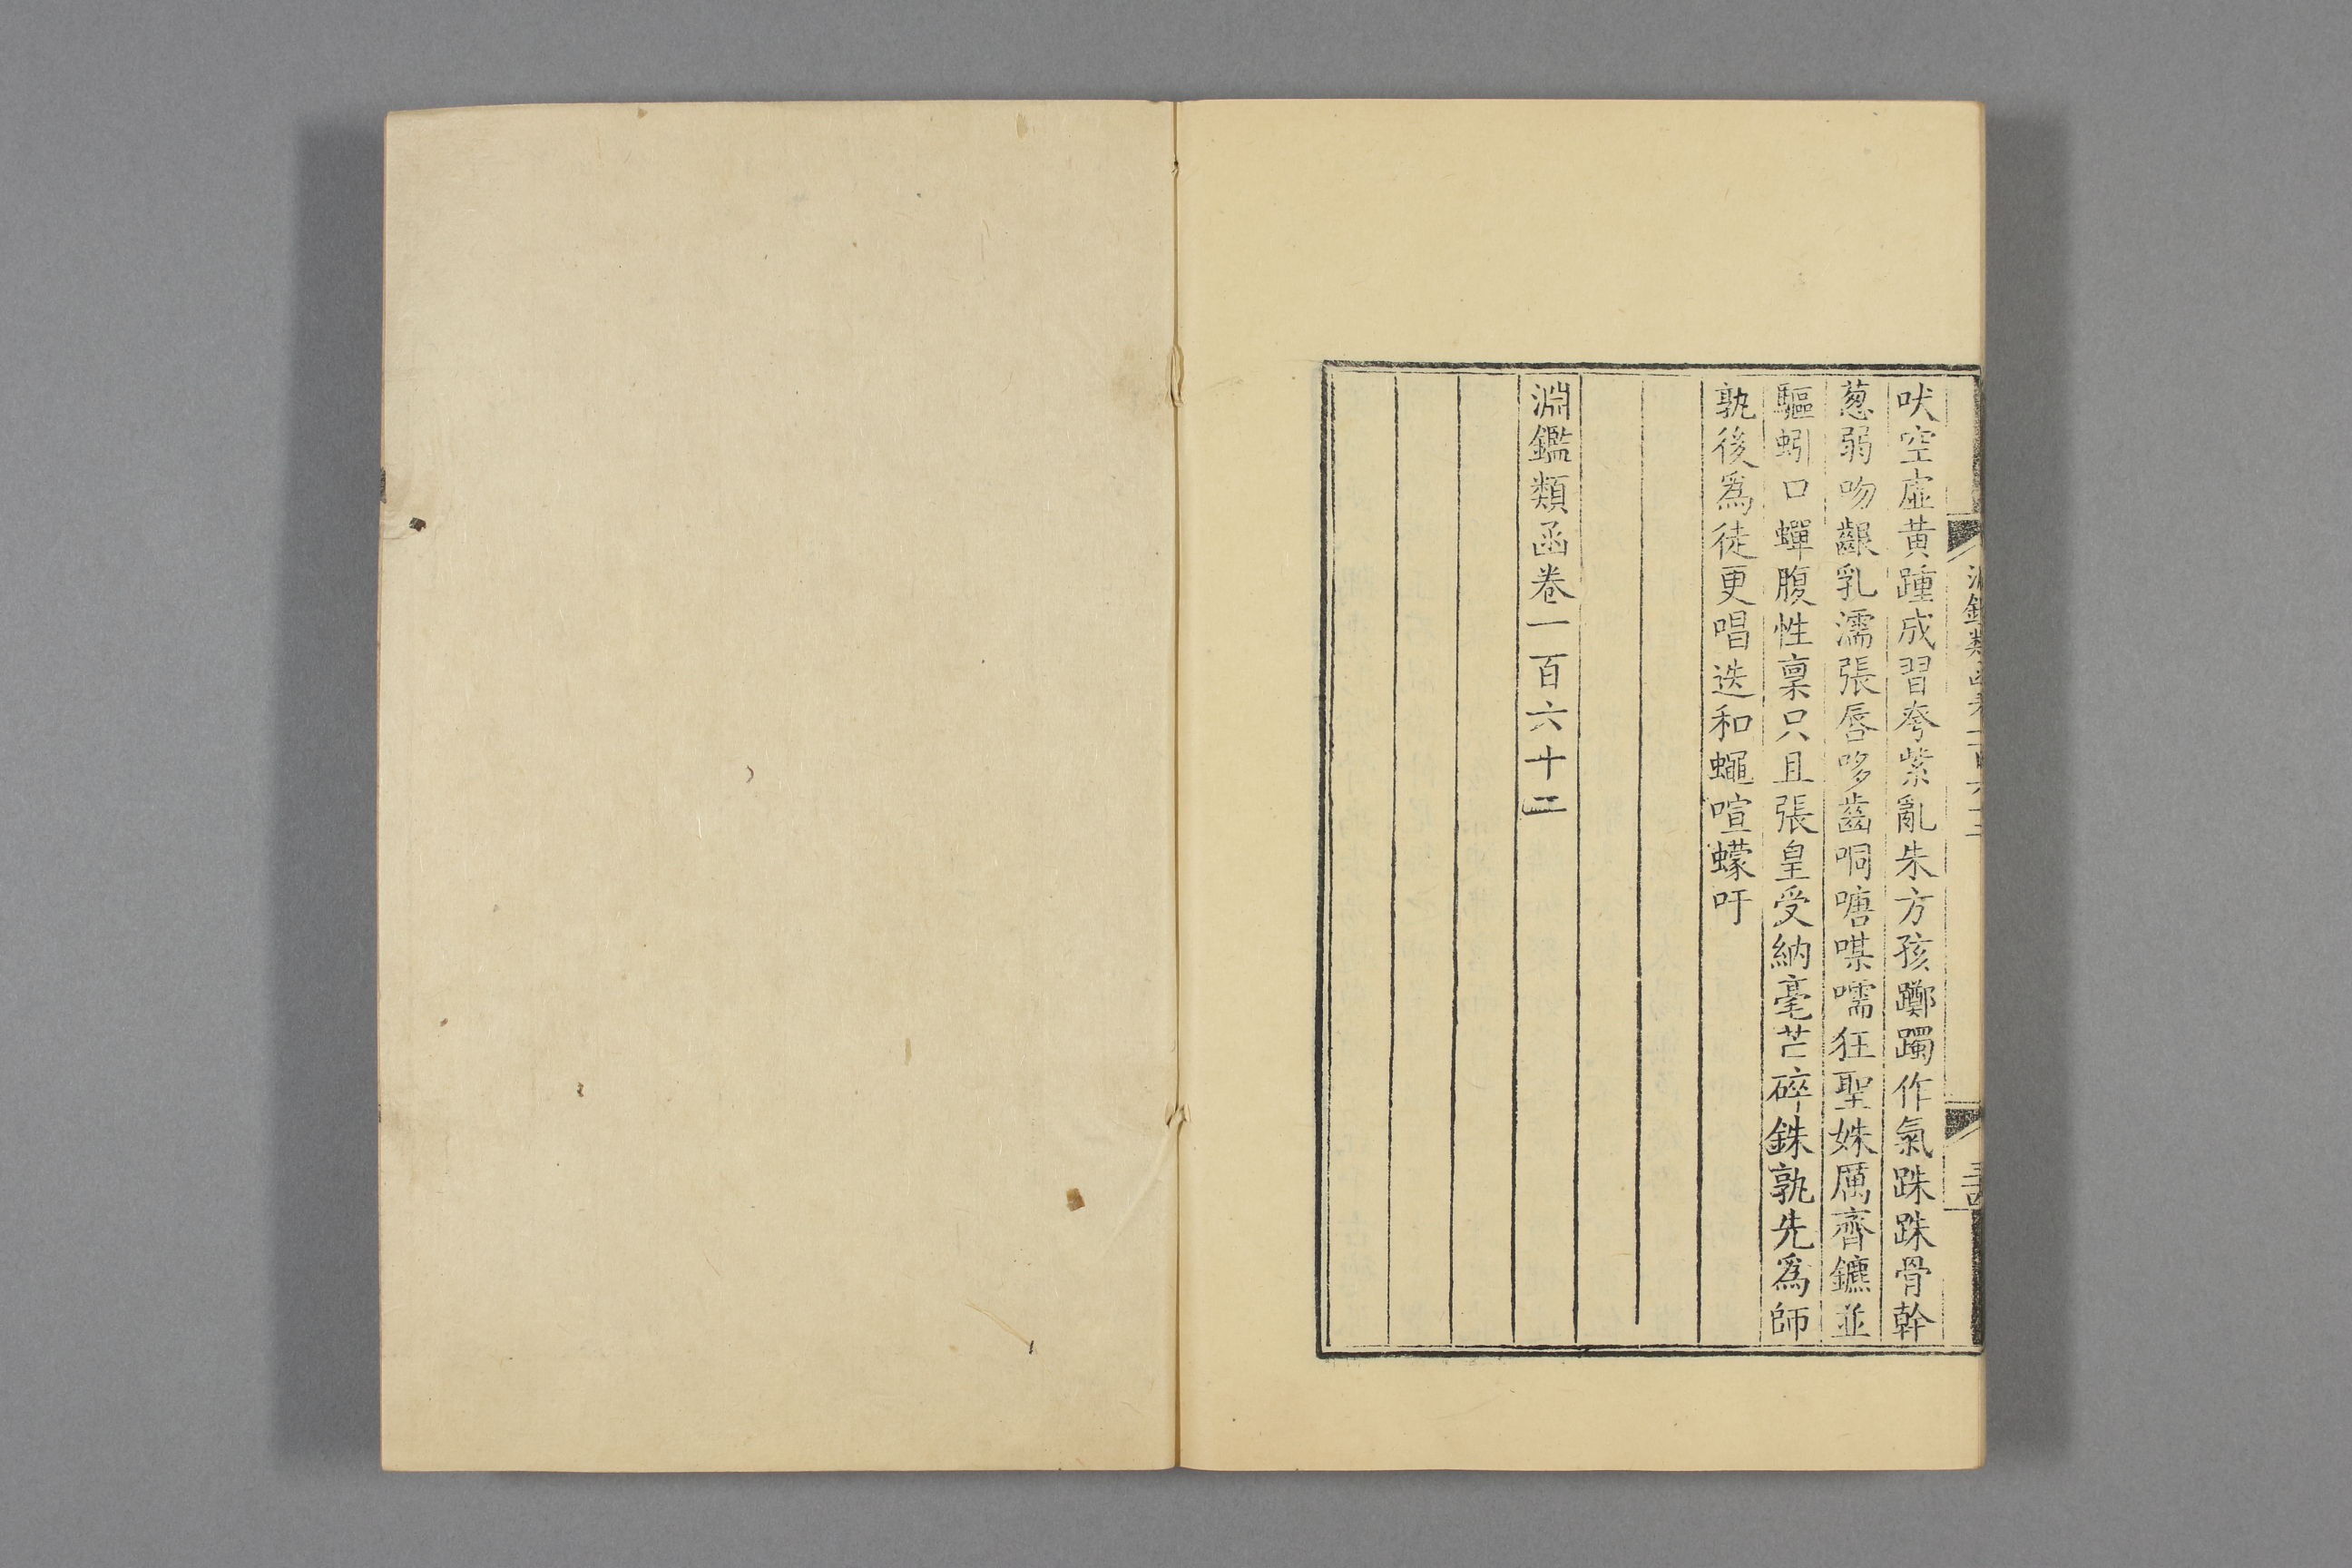 淵鑑類函卷一百六十二
三四
吠空虛黃踵成習夸紫亂朱方孩躑躅作氣跦跦骨幹
葱弱吻齦乳濡張唇哆齒哃嘡㗖嚅狂聖姝厲齊鑣並
驅蚓口蟬腹性稟只且張皇受納毫芒碎銖孰先為師
孰後為徒更唱迭和蠅喧蠓吁
淵鑑類函卷一百六十二